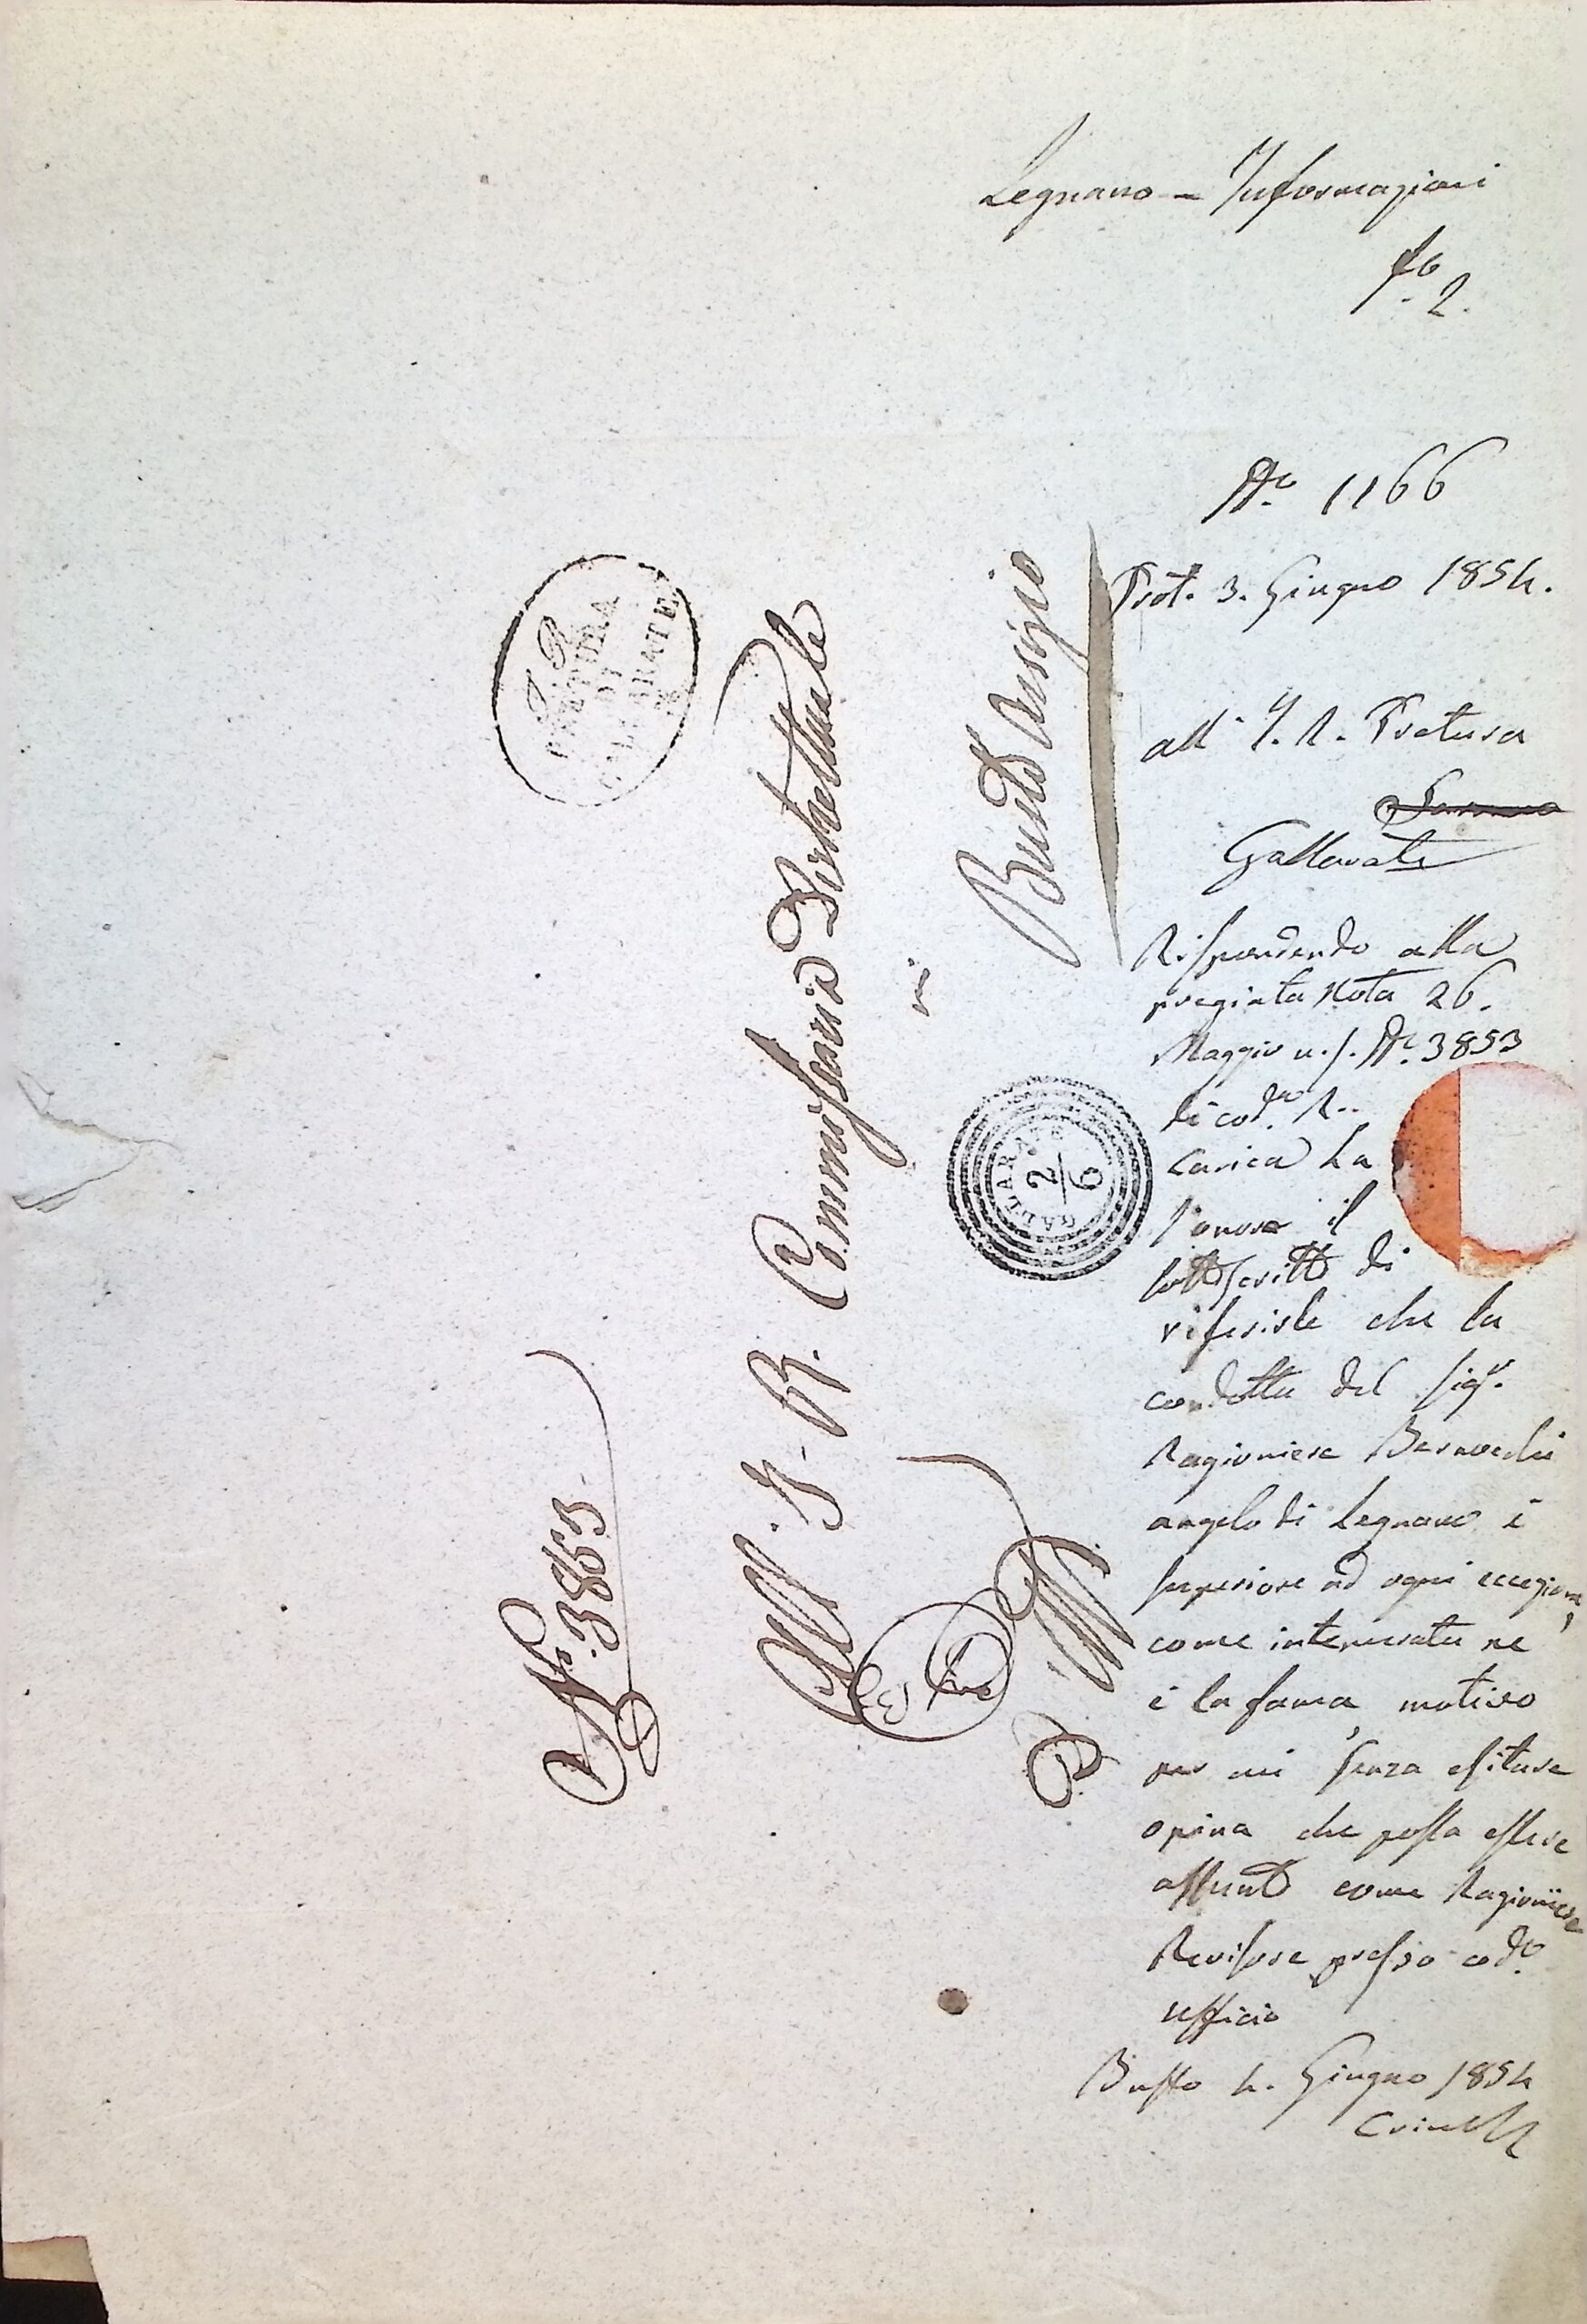 Legnano - Informazioni
fo. 2.
No. 1166
Prot. 3. Giugno 1854.
all' I. R. Pretura
Gallarate
Rispondendo alla
pregiata Nota 26.
Maggio u.s. No. 3853
di cod.a R..
Carica ha
l'onore il
sottoscritto di
riferirle che la
condotta del sigr.
Ragioniere Bernocchi
angelo di Legnano è
superiore ad ogni eccezione,
come intemerata ne
è la fama, motivo
per cui senza esitare
opina che possa essere
assunto come Ragioniere
Revisore presso cod.o
ufficio
Busto 4. Giugno 1854
Crivelli
I. R.
PRETURA
DI
GALLARATE
No. 3853.
All' I. R. Commissario Distrettuale
in
Busto Arsizio
GALLARATE
2
6